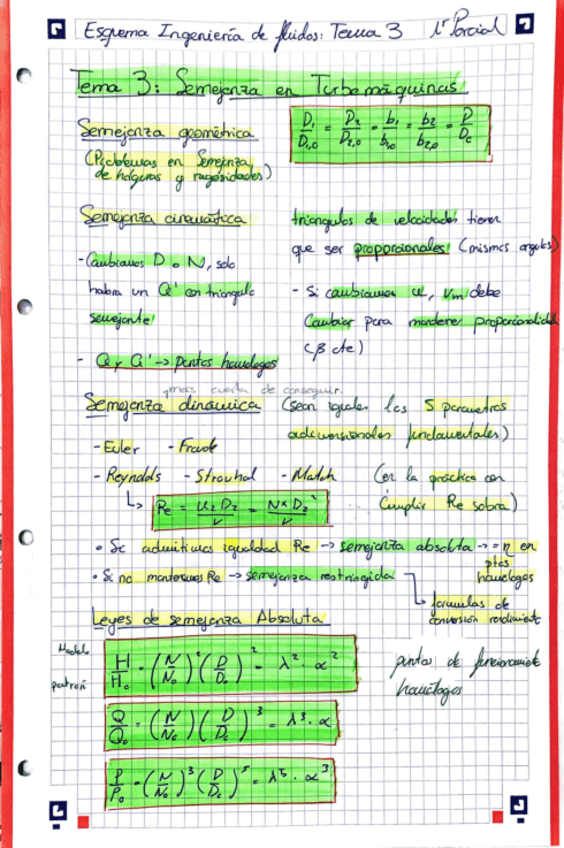 Esquema Ingeniería de fluidos: Tema 3 1r Parcial
Tema 3: Semejanza en Turbomáquinas
Semejanza geométrica
D₁/D₁,₀ = D₂/D₂,₀ = b₁/b₁,₀ = b₂/b₂,₀ = D/D₀
(Problemas en Semejanza
de holguras y rugosidades)
Semejanza cinemática
triangulos de velocidades tienen
que ser proporcionales (mismos angulos)
- Cambiamos D o N, solo
habra un Q' con triangulo
semejante
- Si cambiamos u, Vm debe
Cambiar para mantener proporcionalidad
(β cte)
- Q y Q' → puntos homologos
mas cuesta de conseguir.
Semejanza dinámica (sean iguales los 5 parametros
adimensionales fundamentales)
- Euler - Froude
- Reynolds - Strouhal - Match (en la práctica con
Cumplir Re sobra)
Re = u₂D₂/ν = N x D₂²/ν
• Si admitimos igualdad Re → semejanza absoluta → = η en
ptos
homologos
• Si no mantenemos Re → semejanza restringida
formulas de
conversión rendimiento
Leyes de semejanza Absoluta
Modelo
patrón
H/H₀ = (N/N₀)² (D/D₀)² = λ² · α²
puntos de funcionamiento
homólogos
Q/Q₀ = (N/N₀) (D/D₀)³ = λ³ · α
P/P₀ = (N/N₀)³ (D/D₀)⁵ = λ⁵ · α³